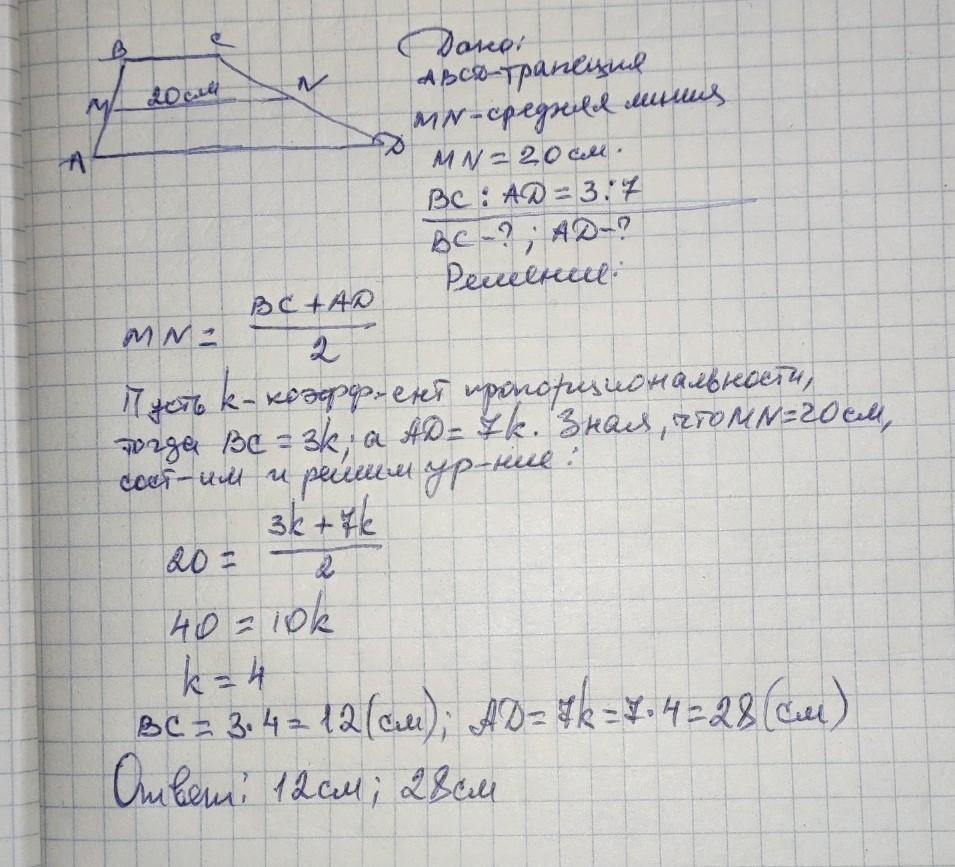 B C
M 20см N
A D
Дано:
ABCD-трапеция
MN-средняя линия
MN = 20 см.
BC : AD = 3:7
BC-? ; AD-?
Решение:
MN = \frac{BC + AD}{2}
Пусть k-коэфф-ент пропорциональности,
тогда BC = 3k; а AD = 7k. Зная, что MN=20см,
сост-им и решим ур-ние:
20 = \frac{3k + 7k}{2}
40 = 10k
k = 4
BC = 3·4 = 12(см); AD = 7k = 7·4 = 28(см)
Ответ: 12см; 28см